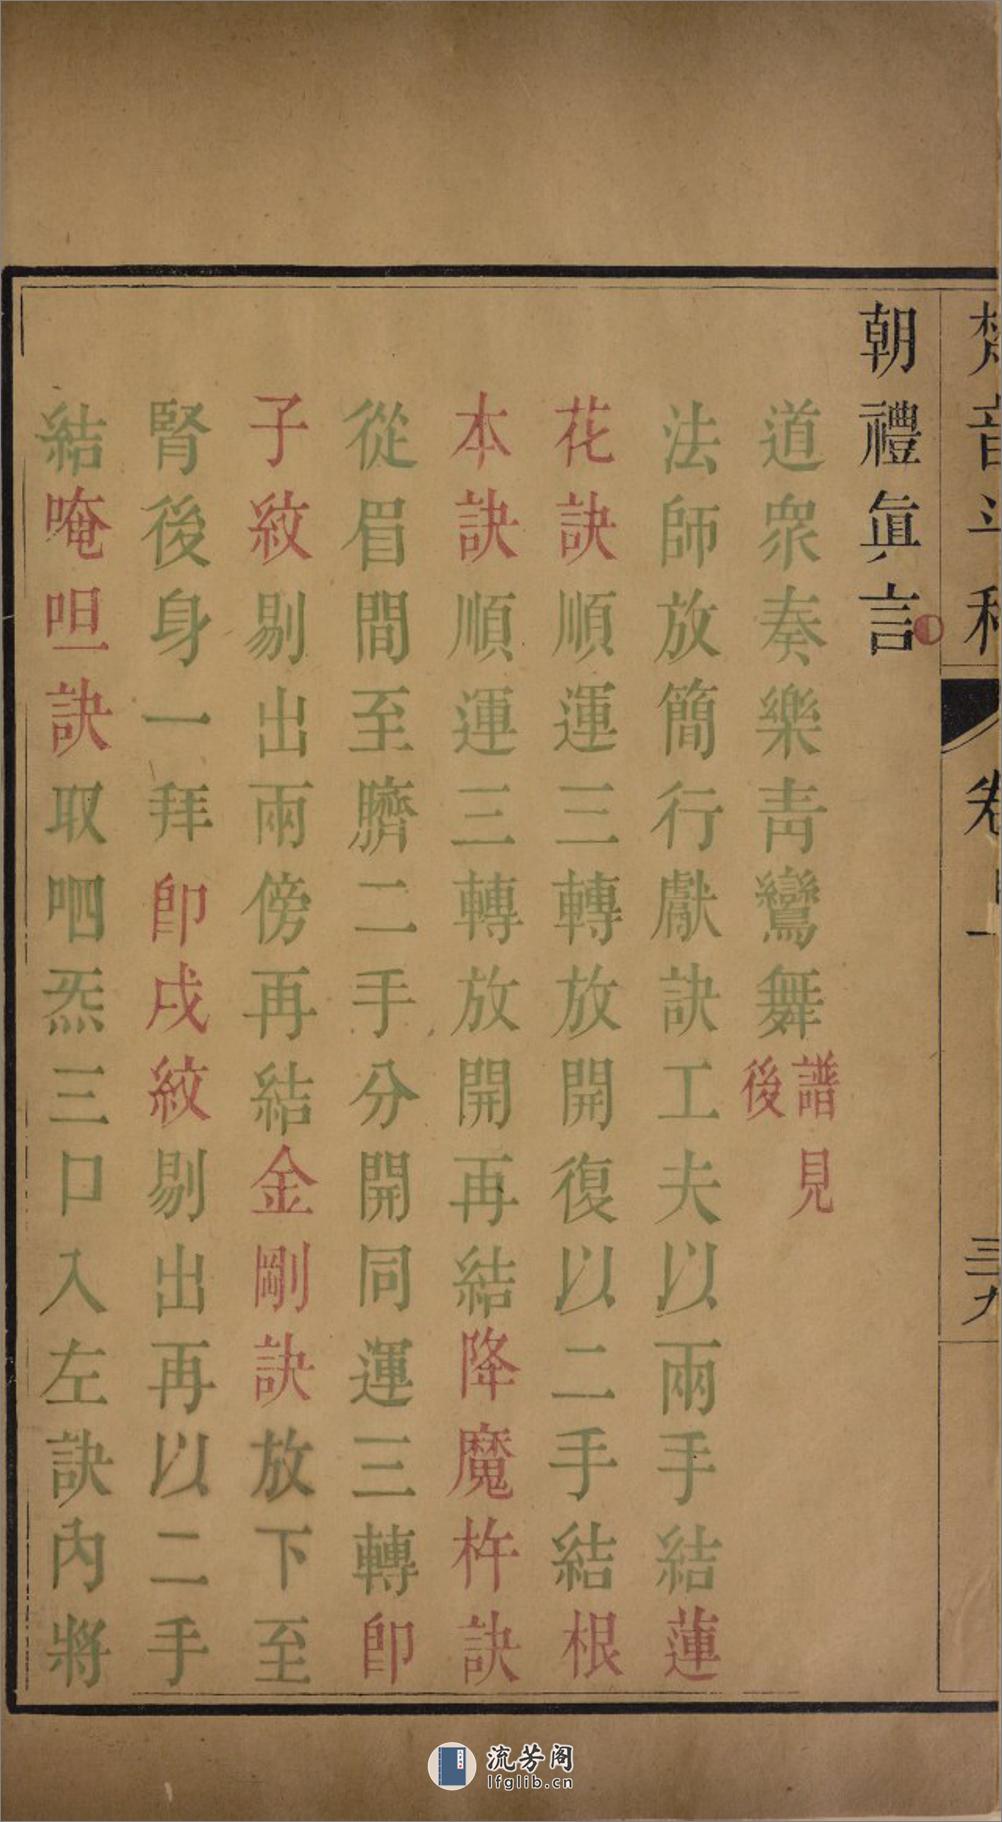 梵音斗科 卷 一 三九
朝禮眞言
道眾奏樂青鸞舞譜見後
法師放簡行獻訣工夫以兩手結蓮
花訣順運三轉放開復以二手結根
本訣順運三轉放開再結降魔杵訣
從眉間至臍二手分開同運三轉卽
子紋剔出兩傍再結金剛訣放下至
腎後身一拜卽戌紋剔出再以二手
結唵呾訣取呬炁三口入左訣內將
流芳阁
lfglib.cn